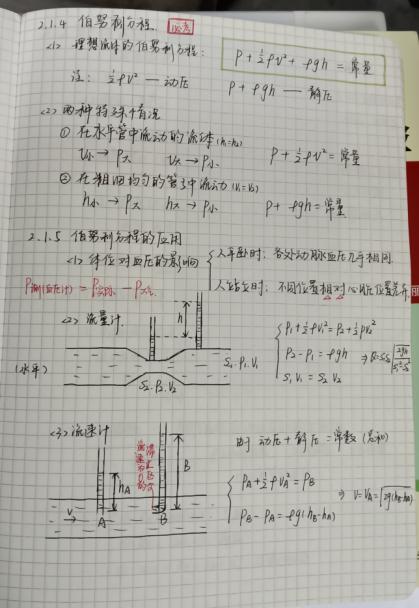 2.1.4 伯努利方程.
<1> 理想流体的伯努利方程: P+½ρv²+ρgh=常量
注: ½ρv² — 动压 P+ρgh — 静压
<2> 两种特殊情况
① 在水平管中流动的流体 (h₁=h₂)
v小→P大 v大→P小 P+½ρv²=常量
② 在粗细均匀的管子中流动 (v₁=v₂)
h小→P大 h大→P小 P+ρgh=常量
2.1.5 伯努利方程的应用
<1> 体位对血压的影响 { 人平卧时: 各处动脉血压几乎相同.
人站立时: 不同位置相对心脏位置差异.
P测(血压计)=P实际-P大气
<2> 流量计.
h
(水平)
S₁.P₁.V₁
S₂.P₂.V₂
P₁+½ρv₁²=P₂+½ρv₂²
P₂-P₁=ρgh
S₁V₁=S₂V₂
<3> 流速计
由 动压+静压=常数
hA
B
V
A
B
PA+½ρvA²=PB
PB-PA=ρg(hB-hA)
⇒ V=VA=√2g(hB-hA)